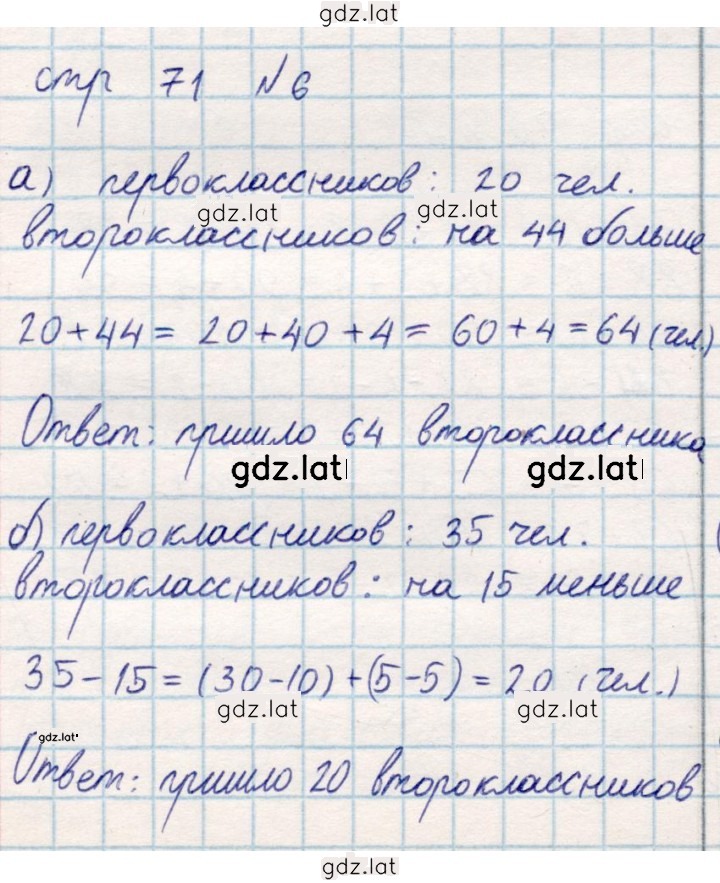 gdz.lat
стр 71 №6
а) первоклассников: 20 чел.
gdz.lat gdz.lat
второклассников: на 44 больше
20+44= 20+40+4= 60+4=64 (чел.)
Ответ: пришло 64 второклассника
gdz.lat gdz.lat
б) первоклассников: 35 чел.
второклассников: на 15 меньше
35-15=(30-10)+(5-5)=20 (чел.)
gdz.lat gdz.lat
gdz.lat
Ответ: пришло 20 второклассников
gdz.lat